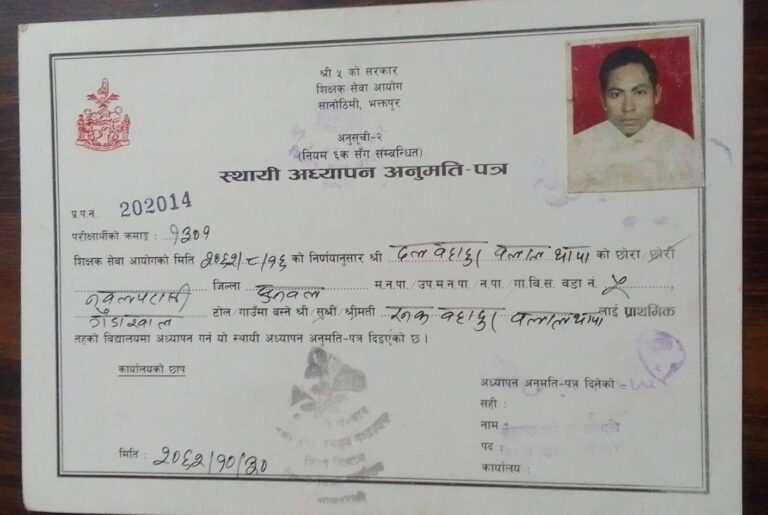 श्री ५ को सरकार
शिक्षक सेवा आयोग
सानोठिमी, भक्तपुर
अनुसूची-२
(नियम ६क सँग सम्बन्धित)
स्थायी अध्यापन अनुमति-पत्र
प्र.प.नं. 202014
परीक्षार्थीको क्रमाङ्क : १३०१
शिक्षक सेवा आयोगको मिति २०६२/८/१६ को निर्णयानुसार श्री दल बहादुर बलाल थापा को छोरा छोरी
नवलपरासी जिल्ला सुनवल म.न.पा./उप.म.न.पा./न.पा./गा.वि.स. वडा नं. ५
टोल/गाउँमा बस्ने श्री/सुश्री/श्रीमती बहादुर बलाल थापा लाई प्राथमिक
तहको विद्यालयमा अध्यापन गर्न यो स्थायी अध्यापन अनुमति-पत्र दिइएको छ ।
कार्यालयको छाप
अध्यापन अनुमति-पत्र दिनेको -
सही :
नाम :
पद :
कार्यालय :
मिति : २०६२/१०/३०